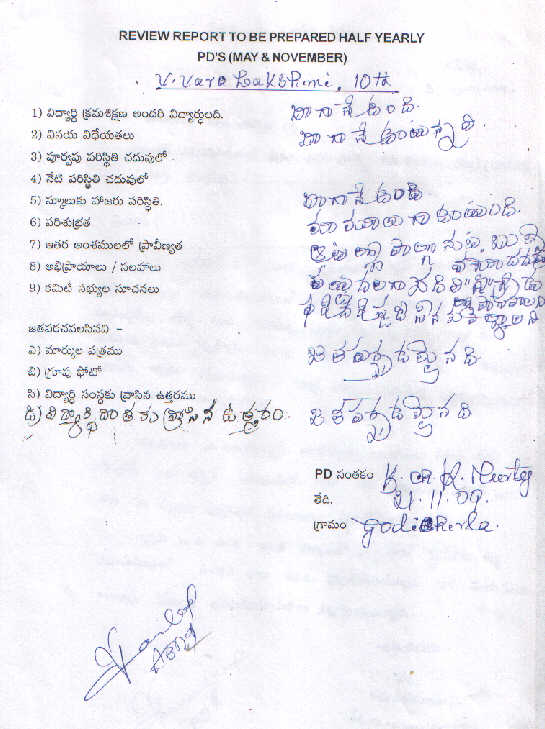 REVIEW REPORT TO BE PREPARED HALF YEARLY
PD'S (MAY & NOVEMBER)
V. Vara Lakshmi, 10th
1) విద్యార్థి క్రమశిక్షణ అందరి విద్యార్థులది. బాగానే ఉంది.
2) వినయ విధేయతలు బాగానే ఉంటున్నది.
3) పూర్వపు పరిస్థితి చదువులో .
4) నేటి పరిస్థితి చదువులో
5) స్కూలుకు హాజరు పరిస్థితి. బాగానే ఉంది.
6) పరిశుభ్రత మామూలుగా ఉంటుంది.
7) ఇతర అంశములలో ప్రావీణ్యత
8) అభిప్రాయాలు / సలహాలు
9) కమిటీ సభ్యుల సూచనలు
జతపరచవలసినవి -
ఎ) మార్కుల పత్రము
బి) గ్రూపు ఫోటో జతపర్చడమైనది
సి) విద్యార్థి సంస్థకు వ్రాసిన ఉత్తరము
డి) విద్యార్థి దాతకు వ్రాసిన ఉత్తరం. జతపర్చడమైనది
PD సంతకం K. R. Murty
తేది. 21.11.09.
గ్రామం Godicherla.